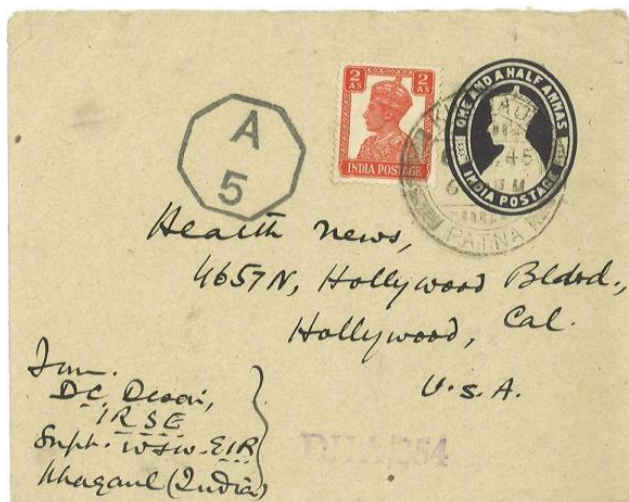 2 2
AS AS
INDIA POSTAGE
ONE AND A HALF ANNAS
INDIA POSTAGE
45
PATNA
A
5
Health News,
4657N, Hollywood Bldvd.,
Hollywood, Cal.
U.S.A.
From.
D.C. Desai,
IRSE
Supt. WSW. EIR
Khagaul (India)
DHA/354